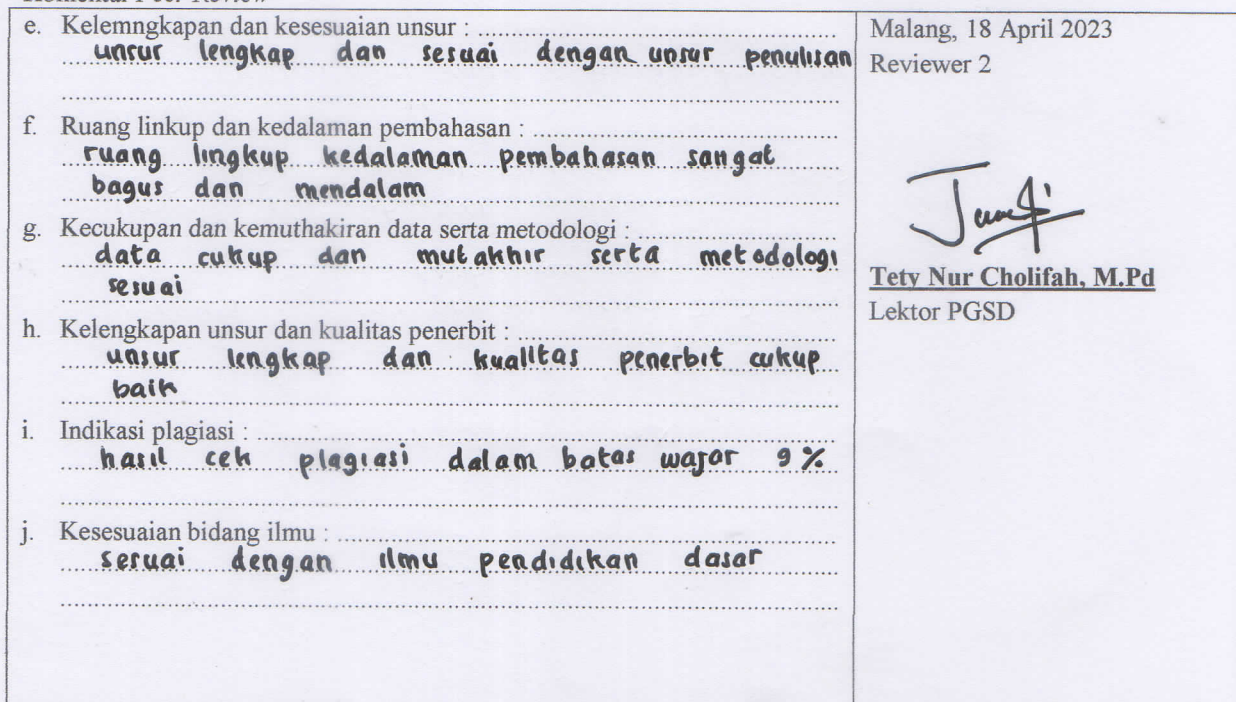 Komentar Peer Review
e. Kelemngkapan dan kesesuaian unsur :
unsur lengkap dan sesuai dengan unsur penulisan
f. Ruang linkup dan kedalaman pembahasan :
ruang lingkup kedalaman pembahasan sangat
bagus dan mendalam
g. Kecukupan dan kemuthakiran data serta metodologi :
data cukup dan mutakhir serta metodologi
sesuai
h. Kelengkapan unsur dan kualitas penerbit :
unsur lengkap dan kualitas penerbit cukup
baik
i. Indikasi plagiasi :
hasil cek plagiasi dalam batas wajar 9%
j. Kesesuaian bidang ilmu :
sesuai dengan ilmu pendidikan dasar
Malang, 18 April 2023
Reviewer 2
Tety Nur Cholifah, M.Pd
Lektor PGSD